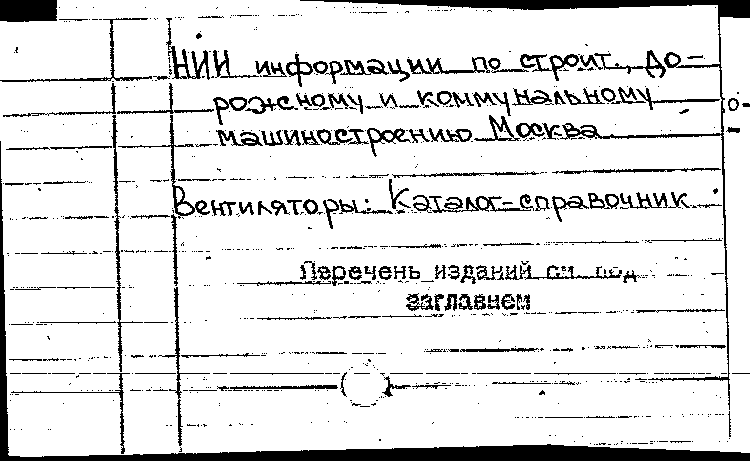 НИИ информации по строит., до-
рожному и коммунальному
машиностроению Москва.
Вентиляторы: Каталог-справочник
Перечень изданий см. под
заглавием